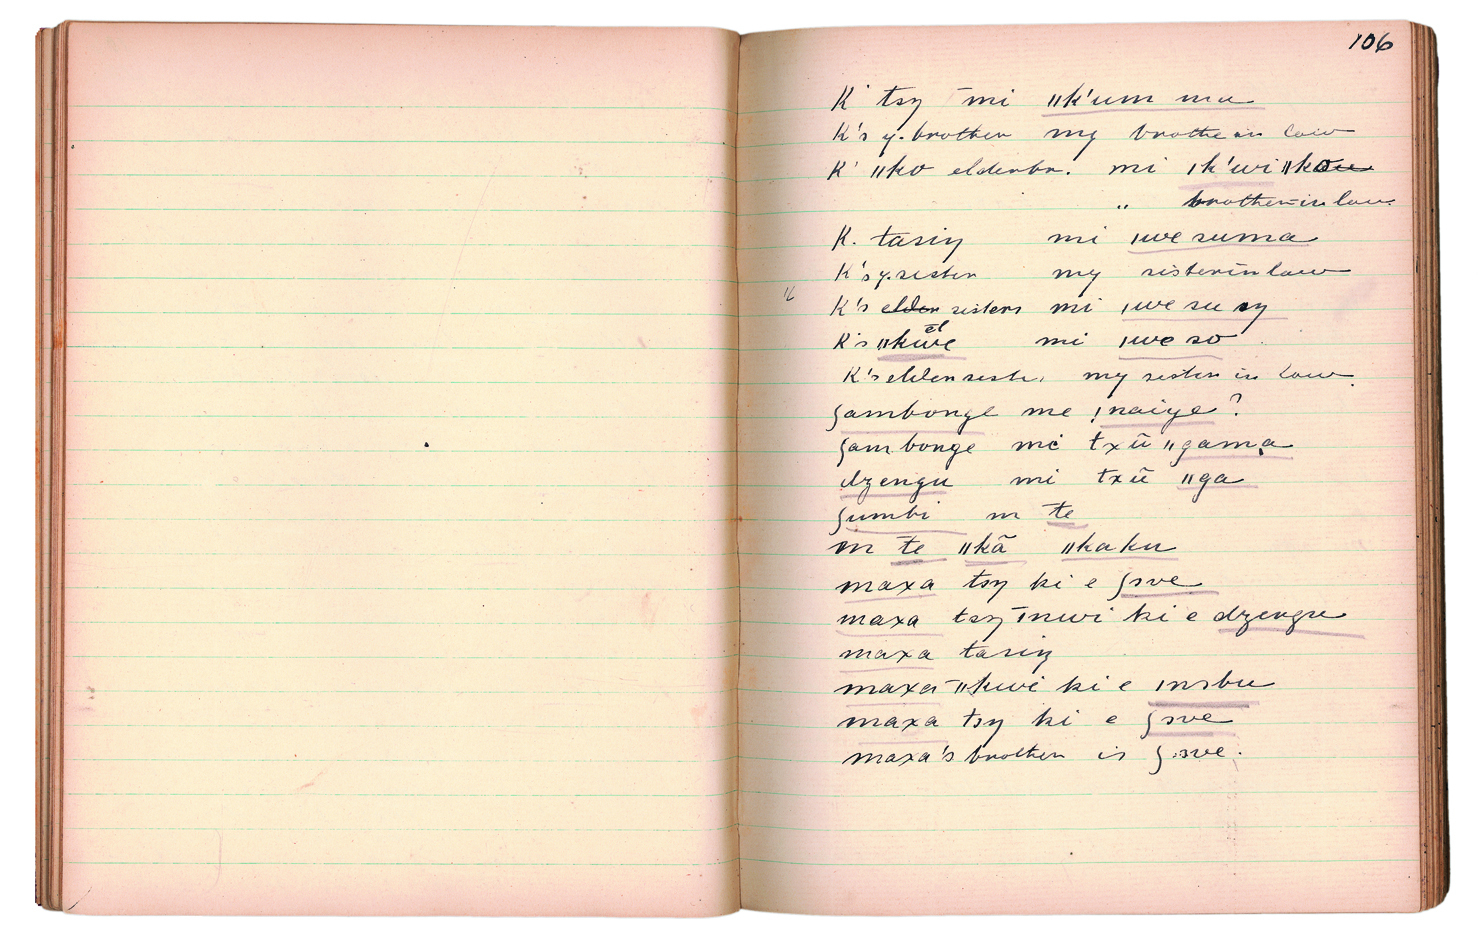 106
K' tsy mi ǁk'um ma
K's y. brother my brother in law
K' ǁko elder br. mi ǀk'wi ǁkou
" brother-in law.
K. tasiŋ mi ǀwe suma
K's y. sister my sister in law
K's elder sisters mi ǀwe su sy
el
K's ǁkwe mi ǀwe so
K's elder siste. my sister in law.
ʃambonge me ǃnaiye?
ʃambonge mi txū ǁgama
dzengu mi txū ǁga
ʃumbi m te
m te ǁkã ǁkaku
maxa tsy ki e ʃsve
maxa tsy īnwi ki e dzengu
maxa tasiŋ
maxa ǁkwi ki e ǀnsbu
maxa tsy ki e ʃsve
maxa's brother is ʃsve.